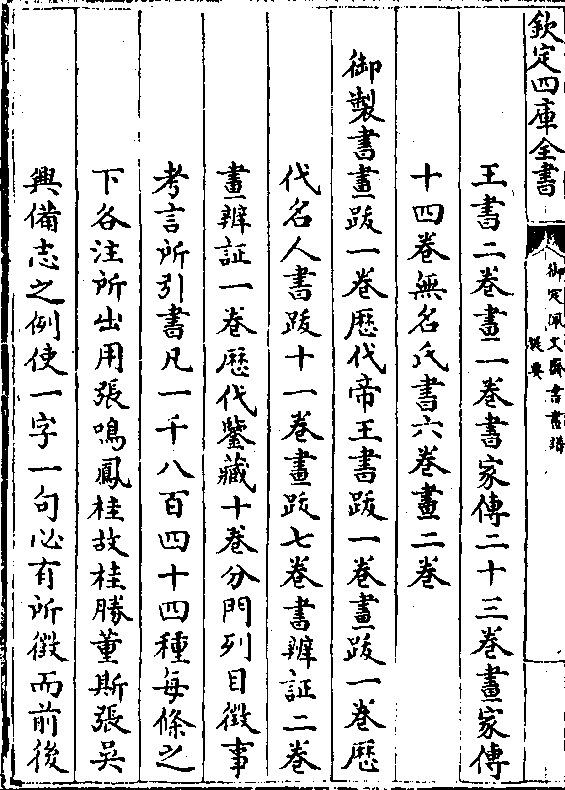 欽定四庫全書
御定佩文齋書畫譜
提要
王書二卷畫二卷書家傳二十三卷畫家傳
十四卷無名氏書六卷畫二卷
御製書畫跋一卷歴代帝王書跋一卷畫跋一卷歴
代名人書跋十一卷畫跋七卷書辨証二卷
畫辨証一卷歴代鑒藏十卷分門列目徴事
考言所引書凡一千八百四十四種每條之
下各注所出用張鳴鳳桂故桂勝董斯張吳
興備志之例使一字一句必有所徴而前後